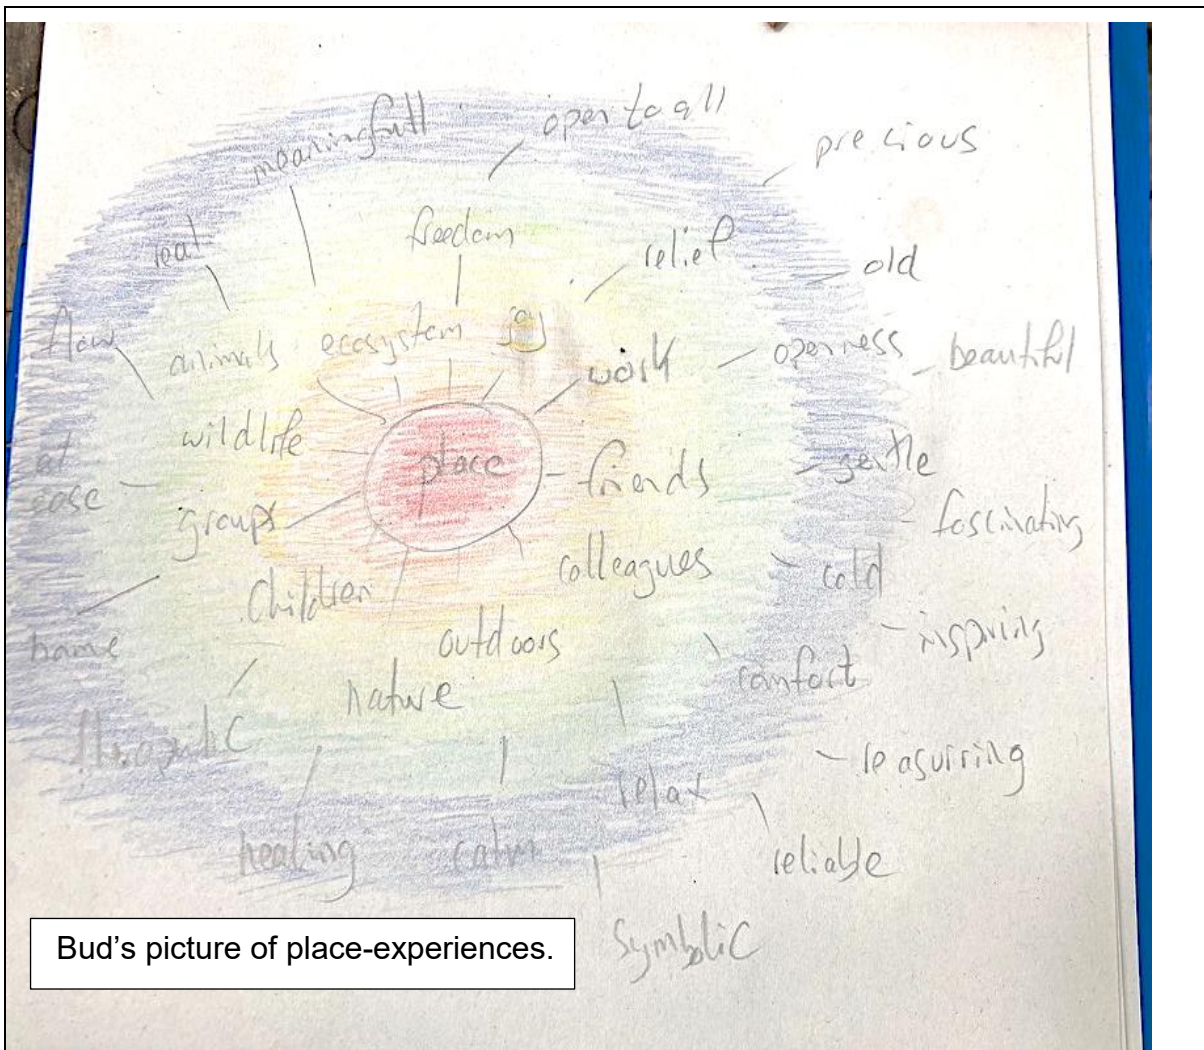 open to all
meaningfull
precious
freedom
real
relief
old
flow
animals
ecosystem
joy
work
openness
beautiful
wildlife
place
friends
gentle
at
ease
groups
fascinating
colleagues
cold
Children
home
outdoors
inspiring
nature
comfort
reasuiring
relax
healing
calm
reliable
Symbolic
Bud's picture of place-experiences.